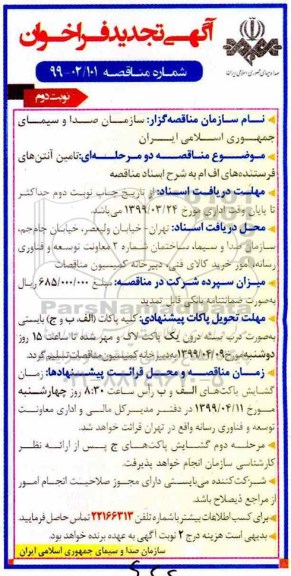 آگهی تجدید فراخوان
شماره مناقصه ۹۹-۰۲/۱۰۱
نوبت دوم
نـام سازمان مناقصه‌گزار: سازمـان صدا و سیمـای
جمهـوری اسـلامـی ایـران
موضـوع مناقصـه دو مرحلـه‌ای: تامین آنتن‌های
فرستنده‌های اف ام به شرح اسناد مناقصه
مهلت دریافت اسناد: از تاریخ چاپ نوبت دوم حداکثر
تا پایان وقت اداری مورخ ۱۳۹۹/۰۳/۲۴ می‌باشد.
محل دریافت اسناد: تهران - خیابان ولیعصر، خیابان جام‌جم،
سازمان صدا و سیما، ساختمان شماره ۲ معاونت توسعه و فناوری
رسانه، امور خرید کالای فنی، دبیرخانه کمیسیون مناقصات
میزان سپرده شرکت در مناقصه: مبلغ ۶۸۵/۰۰۰/۰۰۰ ریال
به‌صورت ضمانتنامه بانکی قابل تمدید
مهلت تحویل پاکات پیشنهادی: کلیه پاکات (الف، ب و ج) بایستی
به‌صورت درب بسته درون یک پاکت لاک و مهر شده تا ساعت ۱۵ روز
دوشنبه مورخ ۱۳۹۹/۰۴/۰۹ به دبیرخانه کمیسیون مناقصات تسلیم گردد.
زمـان مناقصـه و محـل قرائـت پیشنهادها: زمـان
گشایش پاکت‌های الف و ب رأس ساعت ۸:۳۰ روز چهارشنبه
مورخ ۱۳۹۹/۰۴/۱۱ در دفتـر مدیـرکل مالـی و اداری معاونـت
توسعه و فناوری رسانه واقع در تهران قرائت خواهد شد.
مرحلـه دوم گشـایش پاکت‌هـای ج پـس از ارائـه نظـر
کارشناسی سازمان انجام خواهد پذیرفت.
شرکت‌کننده می‌بایستی دارای مجوز صلاحیت انجام امور
از مراجع ذیصلاح باشد.
برای کسب اطلاعات بیشتر با شماره تلفن ۲۲۱۶۶۳۱۳ تماس حاصل فرمایید.
بدیهی است هزینه درج ۲ نوبت آگهی به عهده برنده خواهد بود.
سازمان صدا و سیمای جمهوری اسلامی ایران